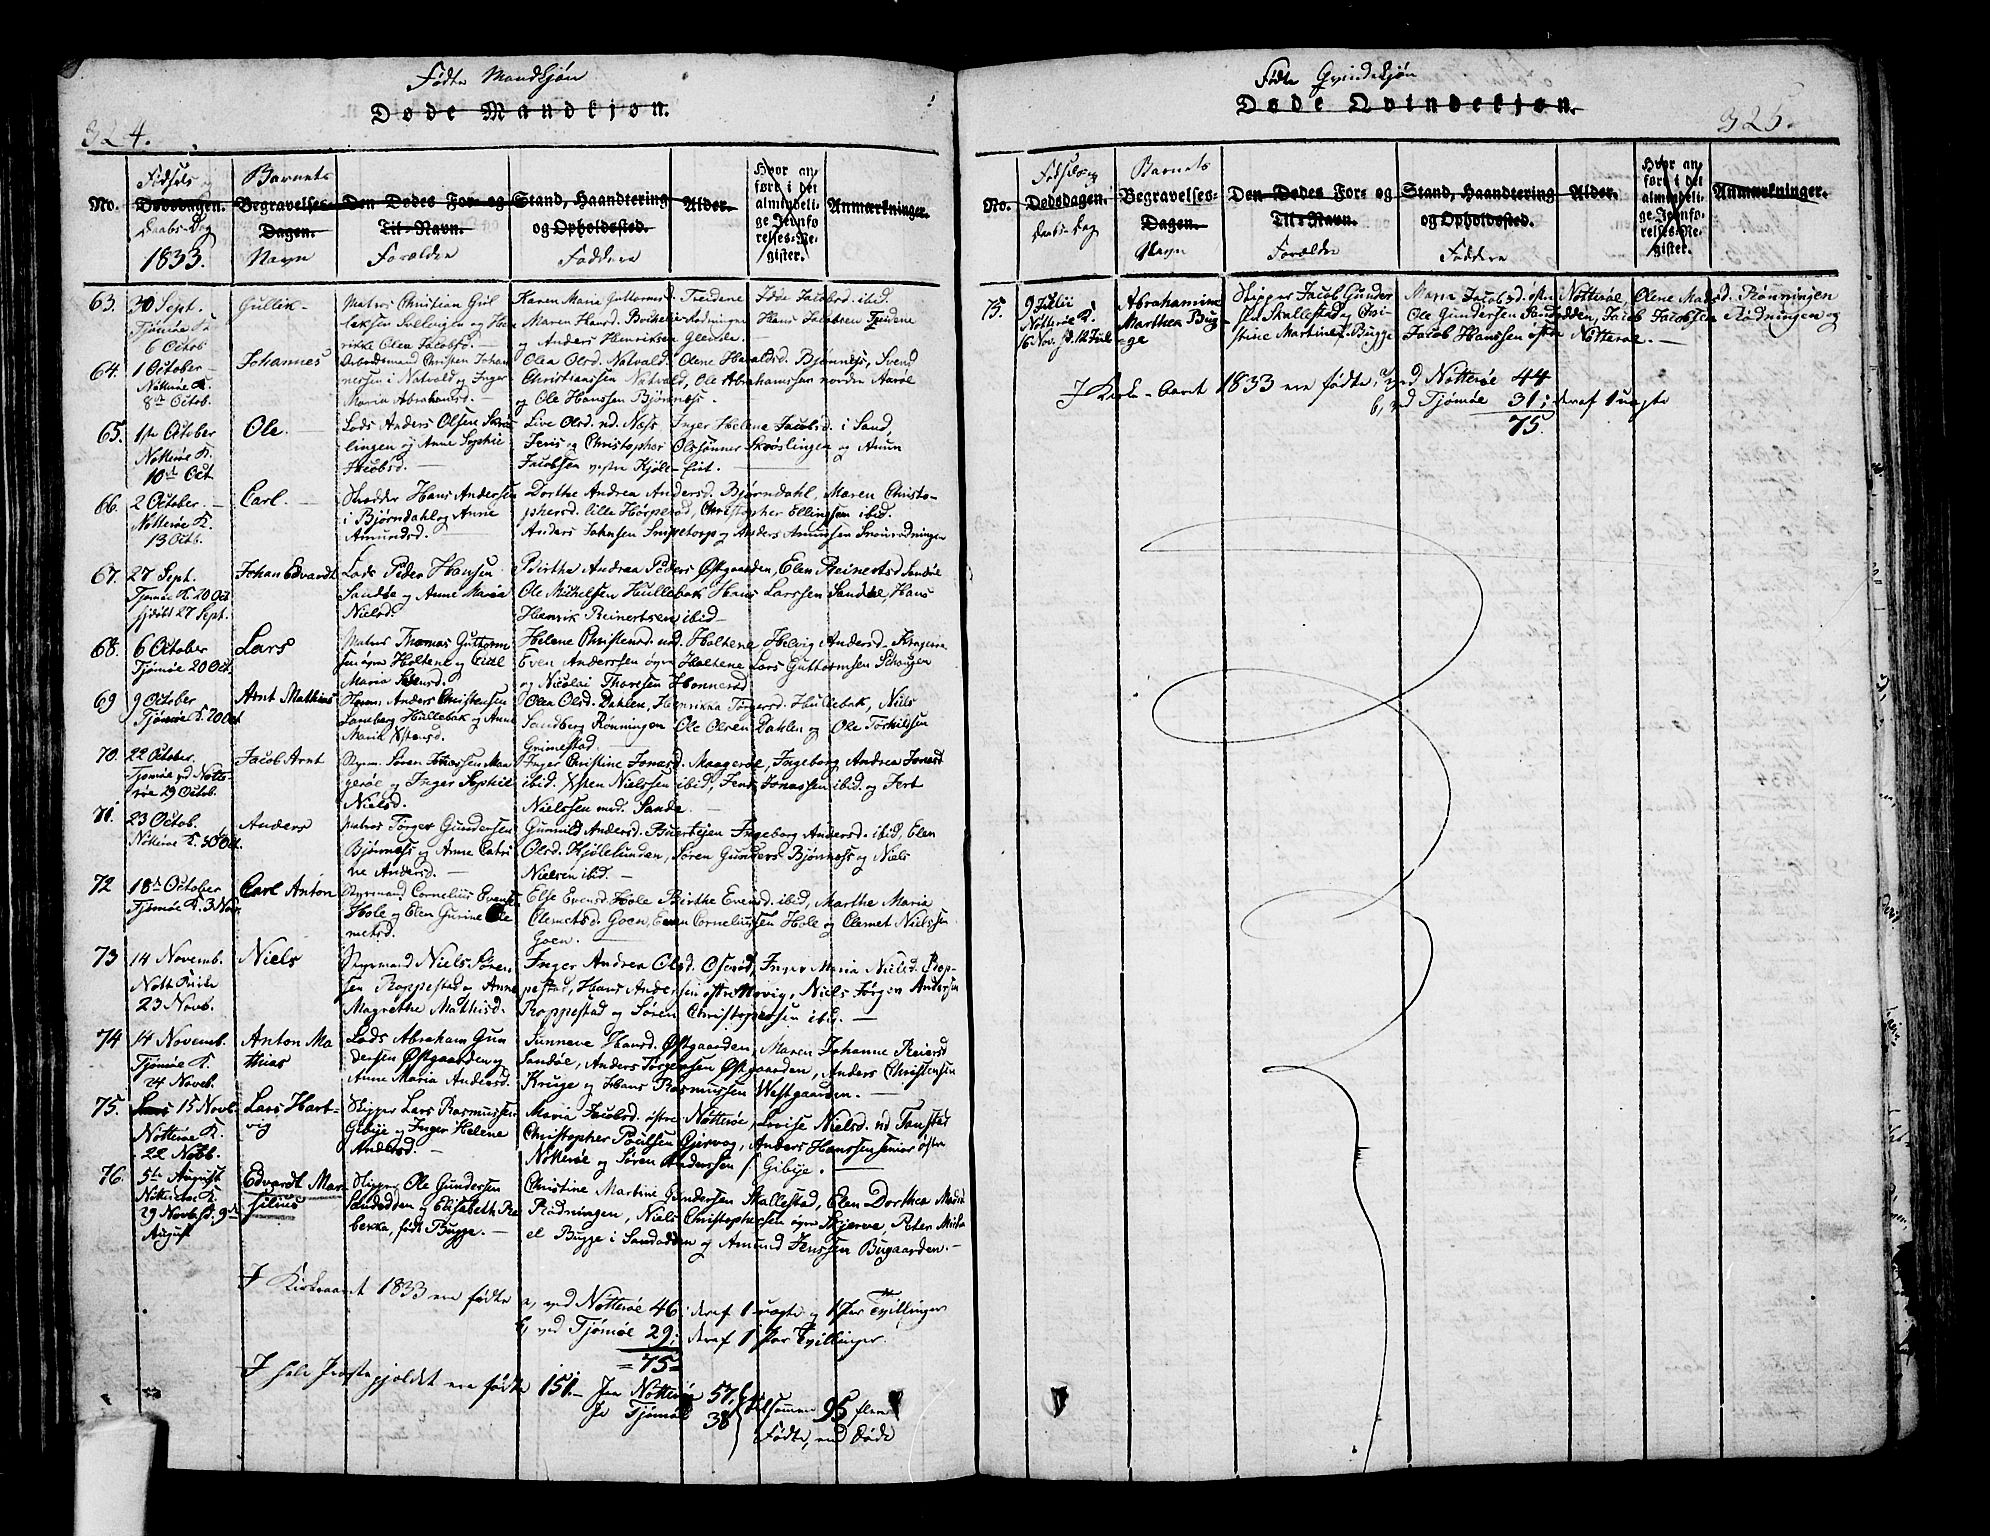 324.
Fødte Mandkjøn
Døde Mandkjøn.
No.
Fødsels og
Dødsdagen.
Daabs-Dag
1833.
Barnets
Begravelses-
Dagen.
Navn
Den Dødes For- og
Til-Navn.
Forældre
Stand, Haandtering
og Opholdssted.
Faddere
Alder.
Hvor an-
føre i det
almindeli-
ge Jevnfø-
relses-Re-
gister.
Anmærkninger.
63. 30 Sept.
Tjømøe
6 Octob
Gullik
Matros Christian Gul
laksen Sollingen og Hen
rikke Olea Jacobsd.
Karen Maria Guttormsd Treidene Idøe Jacobsd. ibid.
Maren Hansd. Rødningen Hans Jacobsen Treidene
og Anders Henriksen
64. 1 October
Nøtterøe K.
8de Octob.
Johannes
Arbeidsmand Christen Johan
nessen i Natvald og Inger
Maria Abrahamsd.
Olea Olsd. Natvald, Olene Haraldsd. Bjørnnæs, Svend
Christianssen Natvald, Ole Abrahamssen nordre Aarøe
og Ole Hanssen Bjørnnæs.
65. 1ste October
Nøtterøe K.
10de Oct
Ole.
Lods Anders Olsen Skrøs
lingen og Anne Sophie
Jacobsd.
Live Olsd. nd. Næss Inger Helene Jacobsd. i Sand,
Jens og Christopher Olssønner Skrøslingen og Anun
Jacobsen vestre Kjøle
66. 2 October
Nøtterøe K.
13 Octb.
Carl.
Skrædder Hans Andersen
i Bjørndahl og Anne
Amundsd.
Dorthe Andrea Andersd. Bjørndahl, Maren Christo-
phersd. lille Hørperød, Christopher Ellingsen ibid.
Anders Johnsen Smidsrød og Anders Amundsen Snourødningen
67. 27 Sept.
Tjømøe K. 20 Oct
hjdøbt 27 Sept.
Johan Edvardt
Lods Peder Hansen
Sandøe og Anne Maria
Nielsd.
Birthe Andrea Peders Østgaarden, Elen Reinertsd Sandøe
Ole Mikkelsen Hullebak Hans Larssen Sandøe, Hans
Henrik Reinertsen ibid
68. 6 October
Tjømøe 20 Oct.
Lars
Matros Thomas Guttorm
sen øvre Holtene og
Maria
Helene Christensd. nd. Holtene Helvig Andersd. Krogene
Even Anderssen øvre Holtene Lars Guttormsen
og Nicolai Thoresen Honnerød
69 9 October
Tjømøe K. 20 Oct
Arnt Mathias
Anders Christensen
Hullebak og Anne
Marie
Olea Olsd. Dahlen, Henrikka Torgersd. Hullebak, Niels
Sandberg Rønningen Ole Olsen Dahlen og Ole Torkilsen
Grimestad
70. 22 October.
Tjømøe
røe 29 Octob.
Jacob Arnt
Styrm. Søren Jonassen Maa
gerøe, og Inger Sophie
Nielsd.
Inger Christine Jonasd. Maagerøe, Ingeborg Andrea Jonasd
ibid. Xsten Nielssen ibid, Jens Jonassen ibid. og Jert
Nielssen Sande.
71. 23 Octob.
Nøtterøe K. 30 Oct.
Anders
Matros Torger Gundersen
Bjørnnæss og Anne Catri
ne Andersd.
Gunnild Andersd. Buerstejen Ingeborg Andersd. ibid, Elen
Olsd. Kjølelunden, Søren Gunders. Bjørnnæss og Niels
Nielsen ibid.
72 18de October
Tjømøe K. 3 Nov.
Carl Anton
Styrmand Cornelius Evense
Hole og Elen Gurine Cle
metsd.
Else Evensd. Hole Birthe Evensd. ibid, Marthe Maria
Clemetsd. Goen, Even Corneliussen Hole og Clemet Nielssen
Goen.
73 14 Novemb.
Nøtt Kirke
23 Novb.
Niels
Styrmand Niels Søren
sen Roppestad og Anne
Magrethe Mathisd.
Inger Andrea Olsd. Oserød, Inger Maria Nielsd. Rop-
pestad, Hans Andersen østre Møvig, Niels Jørgen Andersen
Roppestad og Søren Christophersen ibid.
74 14 Novemb.
Tjømøe K.
24 Noveb.
Anton Ma
thias
Lods Abraham Gun
dersen Østgaarden og
Anne Maria Andersd.
Sunneve Hansd. Østgaarden, Maren Johanne Reiersd
Sandøe, Anders Jørgensen Østgaarden, Anders Christensen
Kruge og Hans Rasmussen Westgaarden.
75. 15 Novb.
Nøtterøe K.
22 Novb.
Lars Hart-
vig
Skipper Lars Rasmussen
Gibøje og Inger Helene
Andersd.
Maria Jacobsd. østre Nøtterøe, Lovise Nielsd. nd Tanstad
Christopher Poulsen Gjervog, Anders Hanssen senior østre
Nøtterøe og Søren Anderssen Gibøje.
76. 5te August
Nøtterøe K.
29 Novb. hd. 9de
August
Edvardt Mar
silius
Skipper Ole Gundersen
Sandodden og Elisabeth Re
bekka, født Bugge.
Christine Martine Gundersen Skallestad, Elen Dorthea
Rødningen, Niels Christophersen øvre Skjerve Peter Micha
el Bugge i Sandodden og Amund Jenssen Bugaarden.
I Kirkeaaret 1833 ere fødte a, ved Nøtterøe 46. deraf 1 uægte og 1 Par Tvillinger
b, ved Tjømøe 29; deraf 1 Par Tvillinger.
= 75 =
I hele Præstegjeldet ere fødte 151.
Paa Nøtterøe 57,
Tjømøe 38
tilsammen 95 flere
Fødte, end Døde
325.
Fødte Qvindekjøn
Døde Qvindekjøn.
No.
Fødsels og
Dødsdagen.
Daabs-Dag
Barnets
Begravelses-
Dagen.
Navn
Den Dødes For- og
Til-Navn.
Forældre
Stand, Haandtering
og Opholdssted.
Faddere
Alder.
Hvor an-
føre i det
almindeli-
ge Jevnfø-
relses-Re-
gister.
Anmærkninger.
75. 9 Julii
Nøtterøe K.
16 Nov. hd. 12 Julii
Abrahamine
Marthea Bug-
ge
Skipper Jacob Gunder
sen Skallestad og Chri
stine Martine f. Bugge
Maria Jacobsd. østre Nøtterøe, Olene Madsd. Rønningen
Ole Gundersen Sandodden, Jacob Jacobsen Rødningen og
Jacob Hanssen østre Nøtterøe.
I Kirke-Aaret 1833 ere fødte, a, ved Nøtterøe 44
b, ved Tjømøe 31; deraf 1 uægte
75.